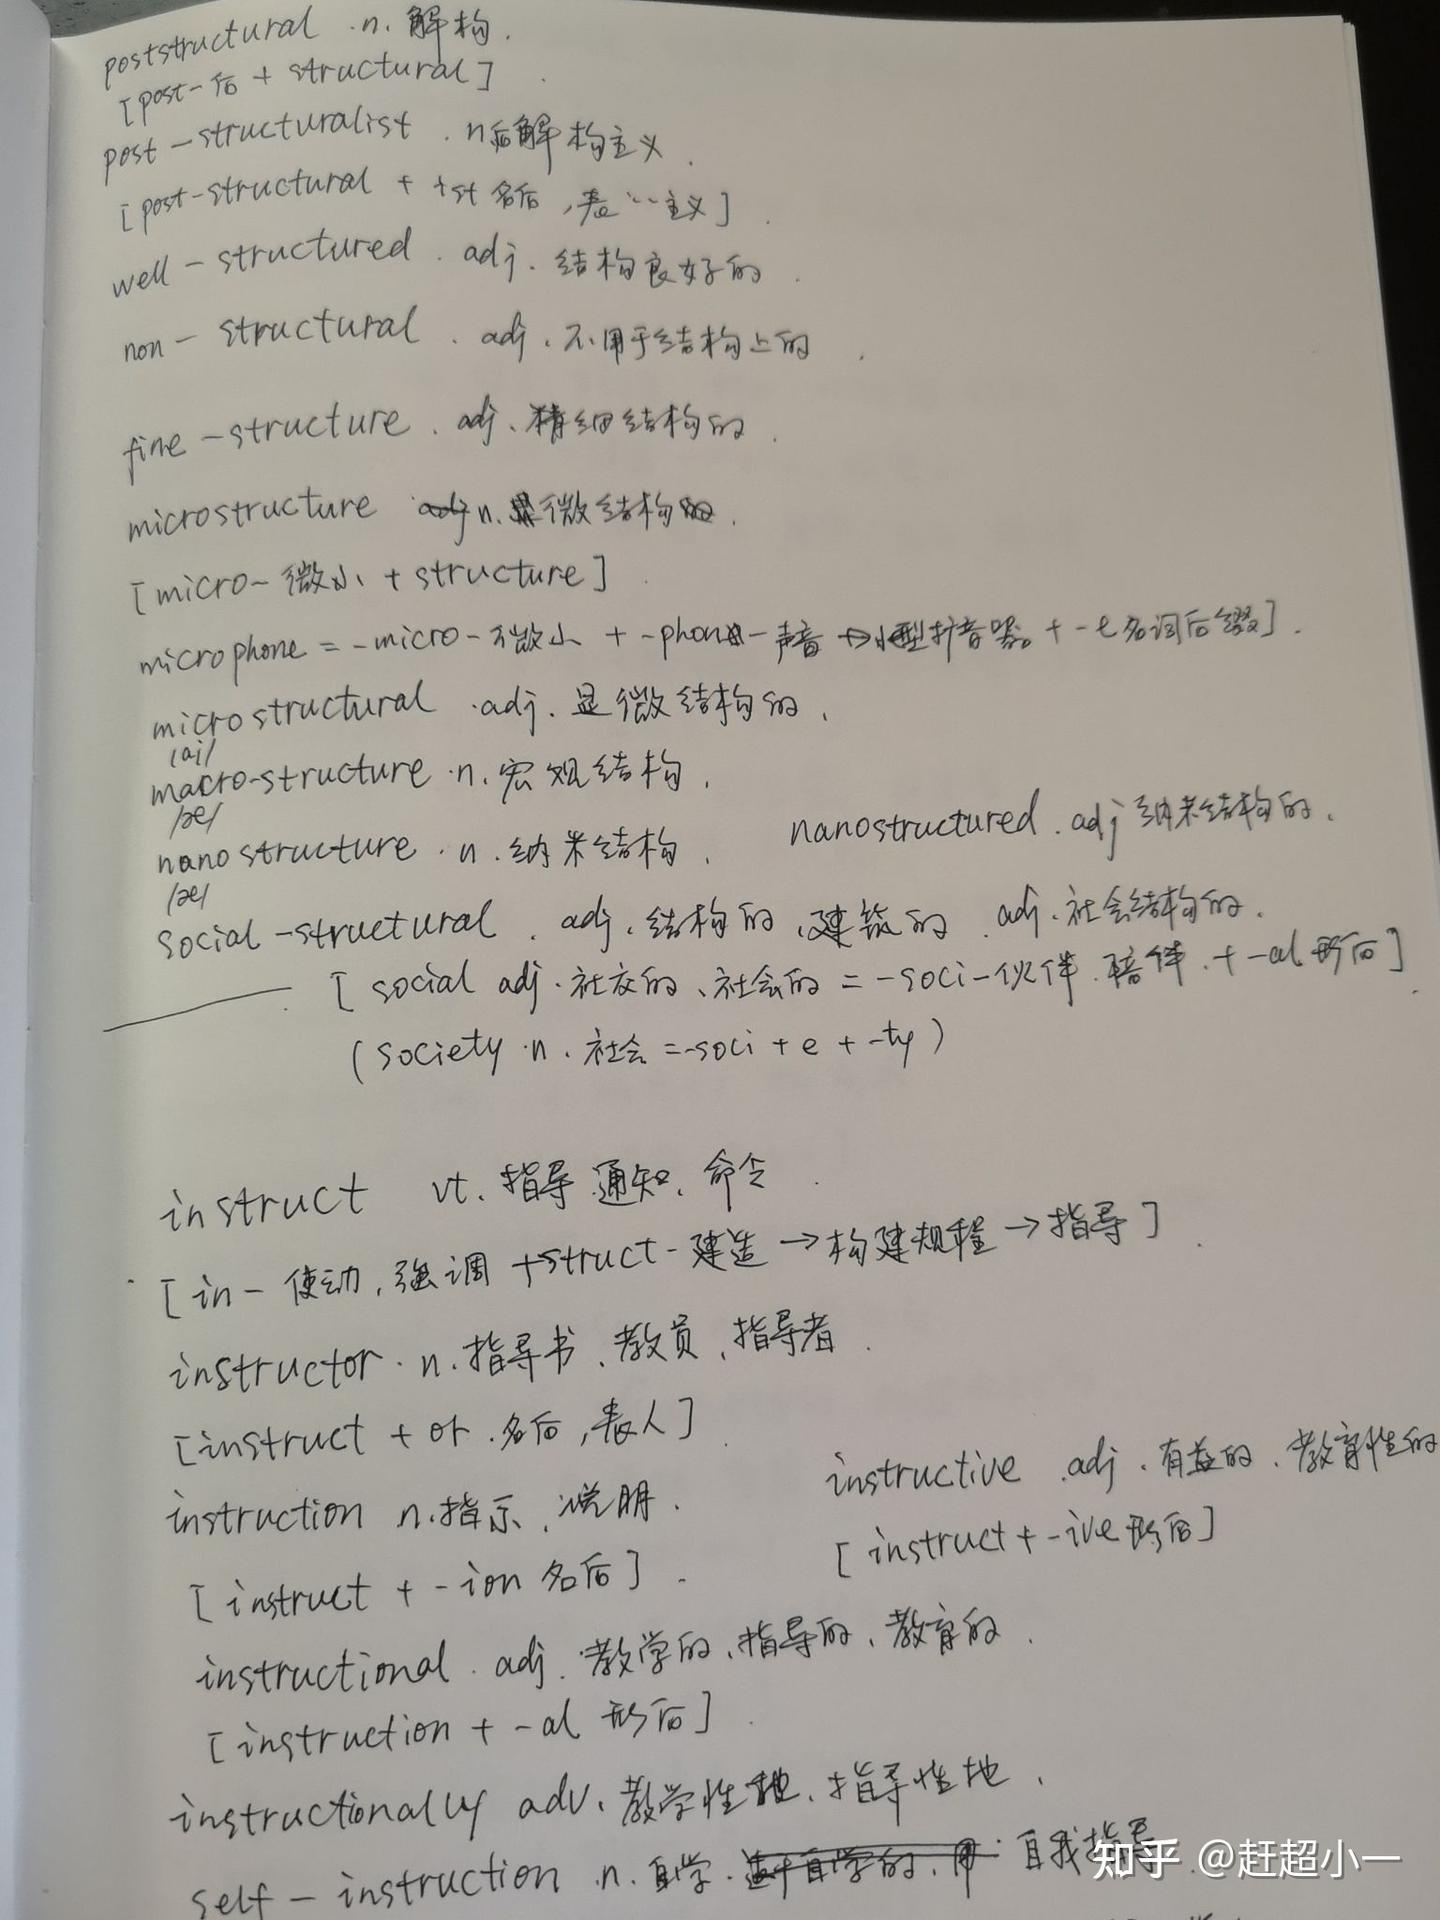 poststructural .n. 解构.
[post-后 + structural]
post-structuralist .n后解构主义.
[post-structural + ist 名后,表…主义].
well-structured . adj. 结构良好的.
non-structural . adj. 不用于结构上的.
fine-structure . adj. 精细结构的.
microstructure n.微结构.
[micro-微小 + structure]
microphone = -micro-微小 + -phon-声音→小型扩音器 + -e名词后缀].
microstructural .adj. 显微结构的.
/ai/
macro-structure .n. 宏观结构.
/æ/
nanostructure .n.纳米结构. nanostructured .adj纳米结构的.
/æ/
social-structural . adj.结构的、建筑的 . adj.社会结构的.
[social adj.社交的、社会的 = -soci-伙伴.陪伴. + -al 形后]
(society .n. 社会 =-soci + e + -ty)
instruct vt. 指导.通知、命令.
[in-使动,强调 +struct-建造→构建规程→指导]
instructor. n.指导书、教员、指导者.
[instruct + or .名后,表人]
instruction n.指示、说明. instructive .adj.有益的、教育性的
[instruct + -ion 名后]. [instruct + -ive形后]
instructional . adj. 教学的、指导的、教育的.
[instruction + -al 形后].
instructionally adv. 教学性地、指导性地.
self-instruction .n. 自学. 自我指导.
知乎 @赶超小一